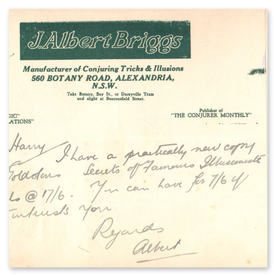 J. Albert Briggs
Manufacturer of Conjuring Tricks & Illusions
560 BOTANY ROAD, ALEXANDRIA,
N.S.W.
Take Botany, Bay St., or Daceyville Tram
and alight at Beaconsfield Street.
Publisher of
"THE CONJURER MONTHLY"
Harry I have a practically new copy
Secrets of Famous Illusionists
@ 17/6. You can have for 7/6 if
interests you
Regards
Albert